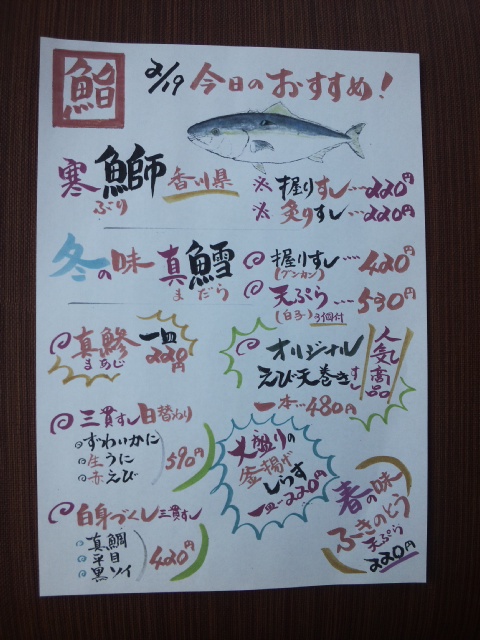 鮨
2/19 今日のおすすめ!
寒鰤 香川県
ぶり
※ 握りすし…220円
※ 炙りすし…220円
冬の味 真鱈
まだら
握りすし…420円
(グンカン)
天ぷら…530円
(白子) 3個付
真鯵 一皿
まあじ 220円
オリジナル
えび天巻きすし
一本…480円
人気商品
三貫すし 日替わり
ずわいかに
生うに
赤えび
590円
大盛りの
釜揚げ
しらす
一皿…220円
白身づくし三貫すし
真鯛
平目
黒ソイ
420円
春の味
ふきのとう
天ぷら
220円